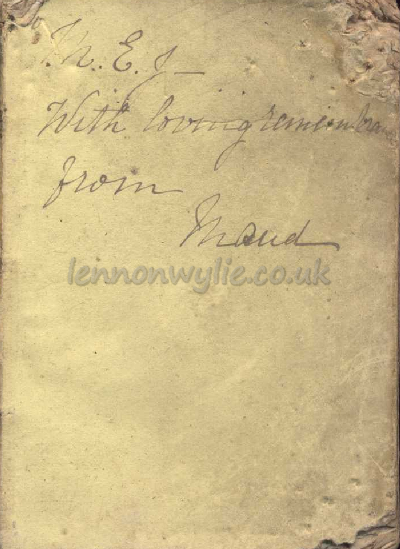 M. E. J
With loving remembran
from
Maud
lennonwylie.co.uk